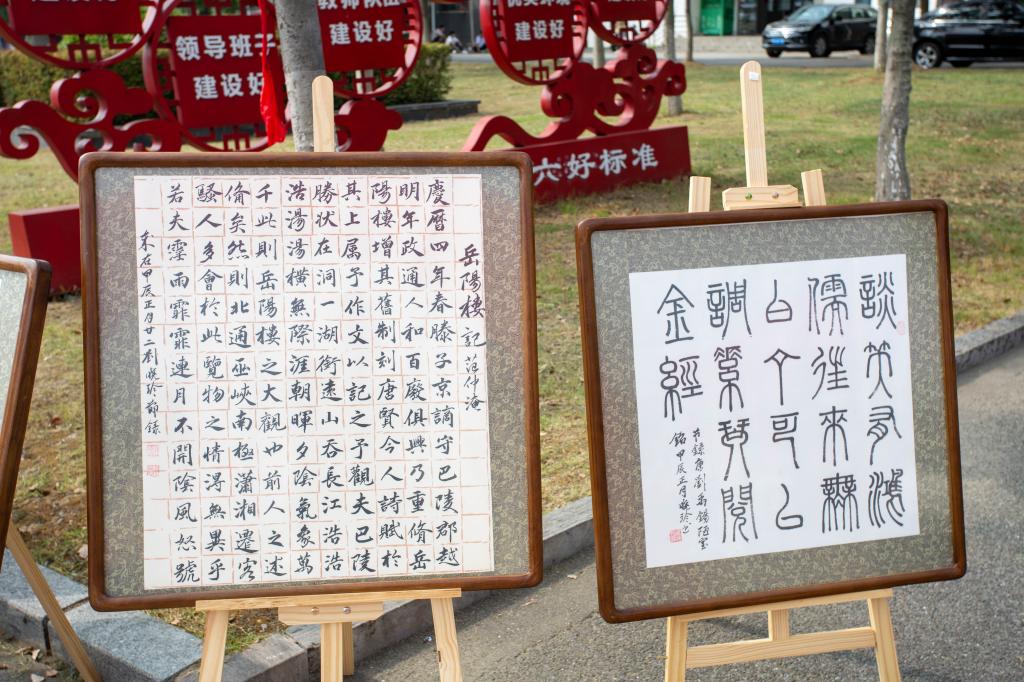 领导班子
建设好
教师队伍
建设好
建设好
六好标准
岳陽樓記 范仲淹
慶曆四年春滕子京謫守巴陵郡越
明年政通人和百廢俱興乃重脩岳
陽樓增其舊制刻唐賢今人詩賦於
其上属予作文以記之予觀夫巴陵
勝状在洞一湖銜遠山吞長江浩浩
浩湯湯橫無際涯朝暉夕陰氣象萬
千此則岳陽樓之大觀也前人之述
俻矣然則北通巫峽南極瀟湘遷客
騷人多會於此覽物之情得無異乎
若夫霪雨霏霏連月不開陰風怒號
甲辰正月廿二劉晓玲節錄
談笑有鴻
儒往來無
白丁可以
調素琴閱
金經
节錄唐劉禹锡陋室
銘甲辰正月晓玲書